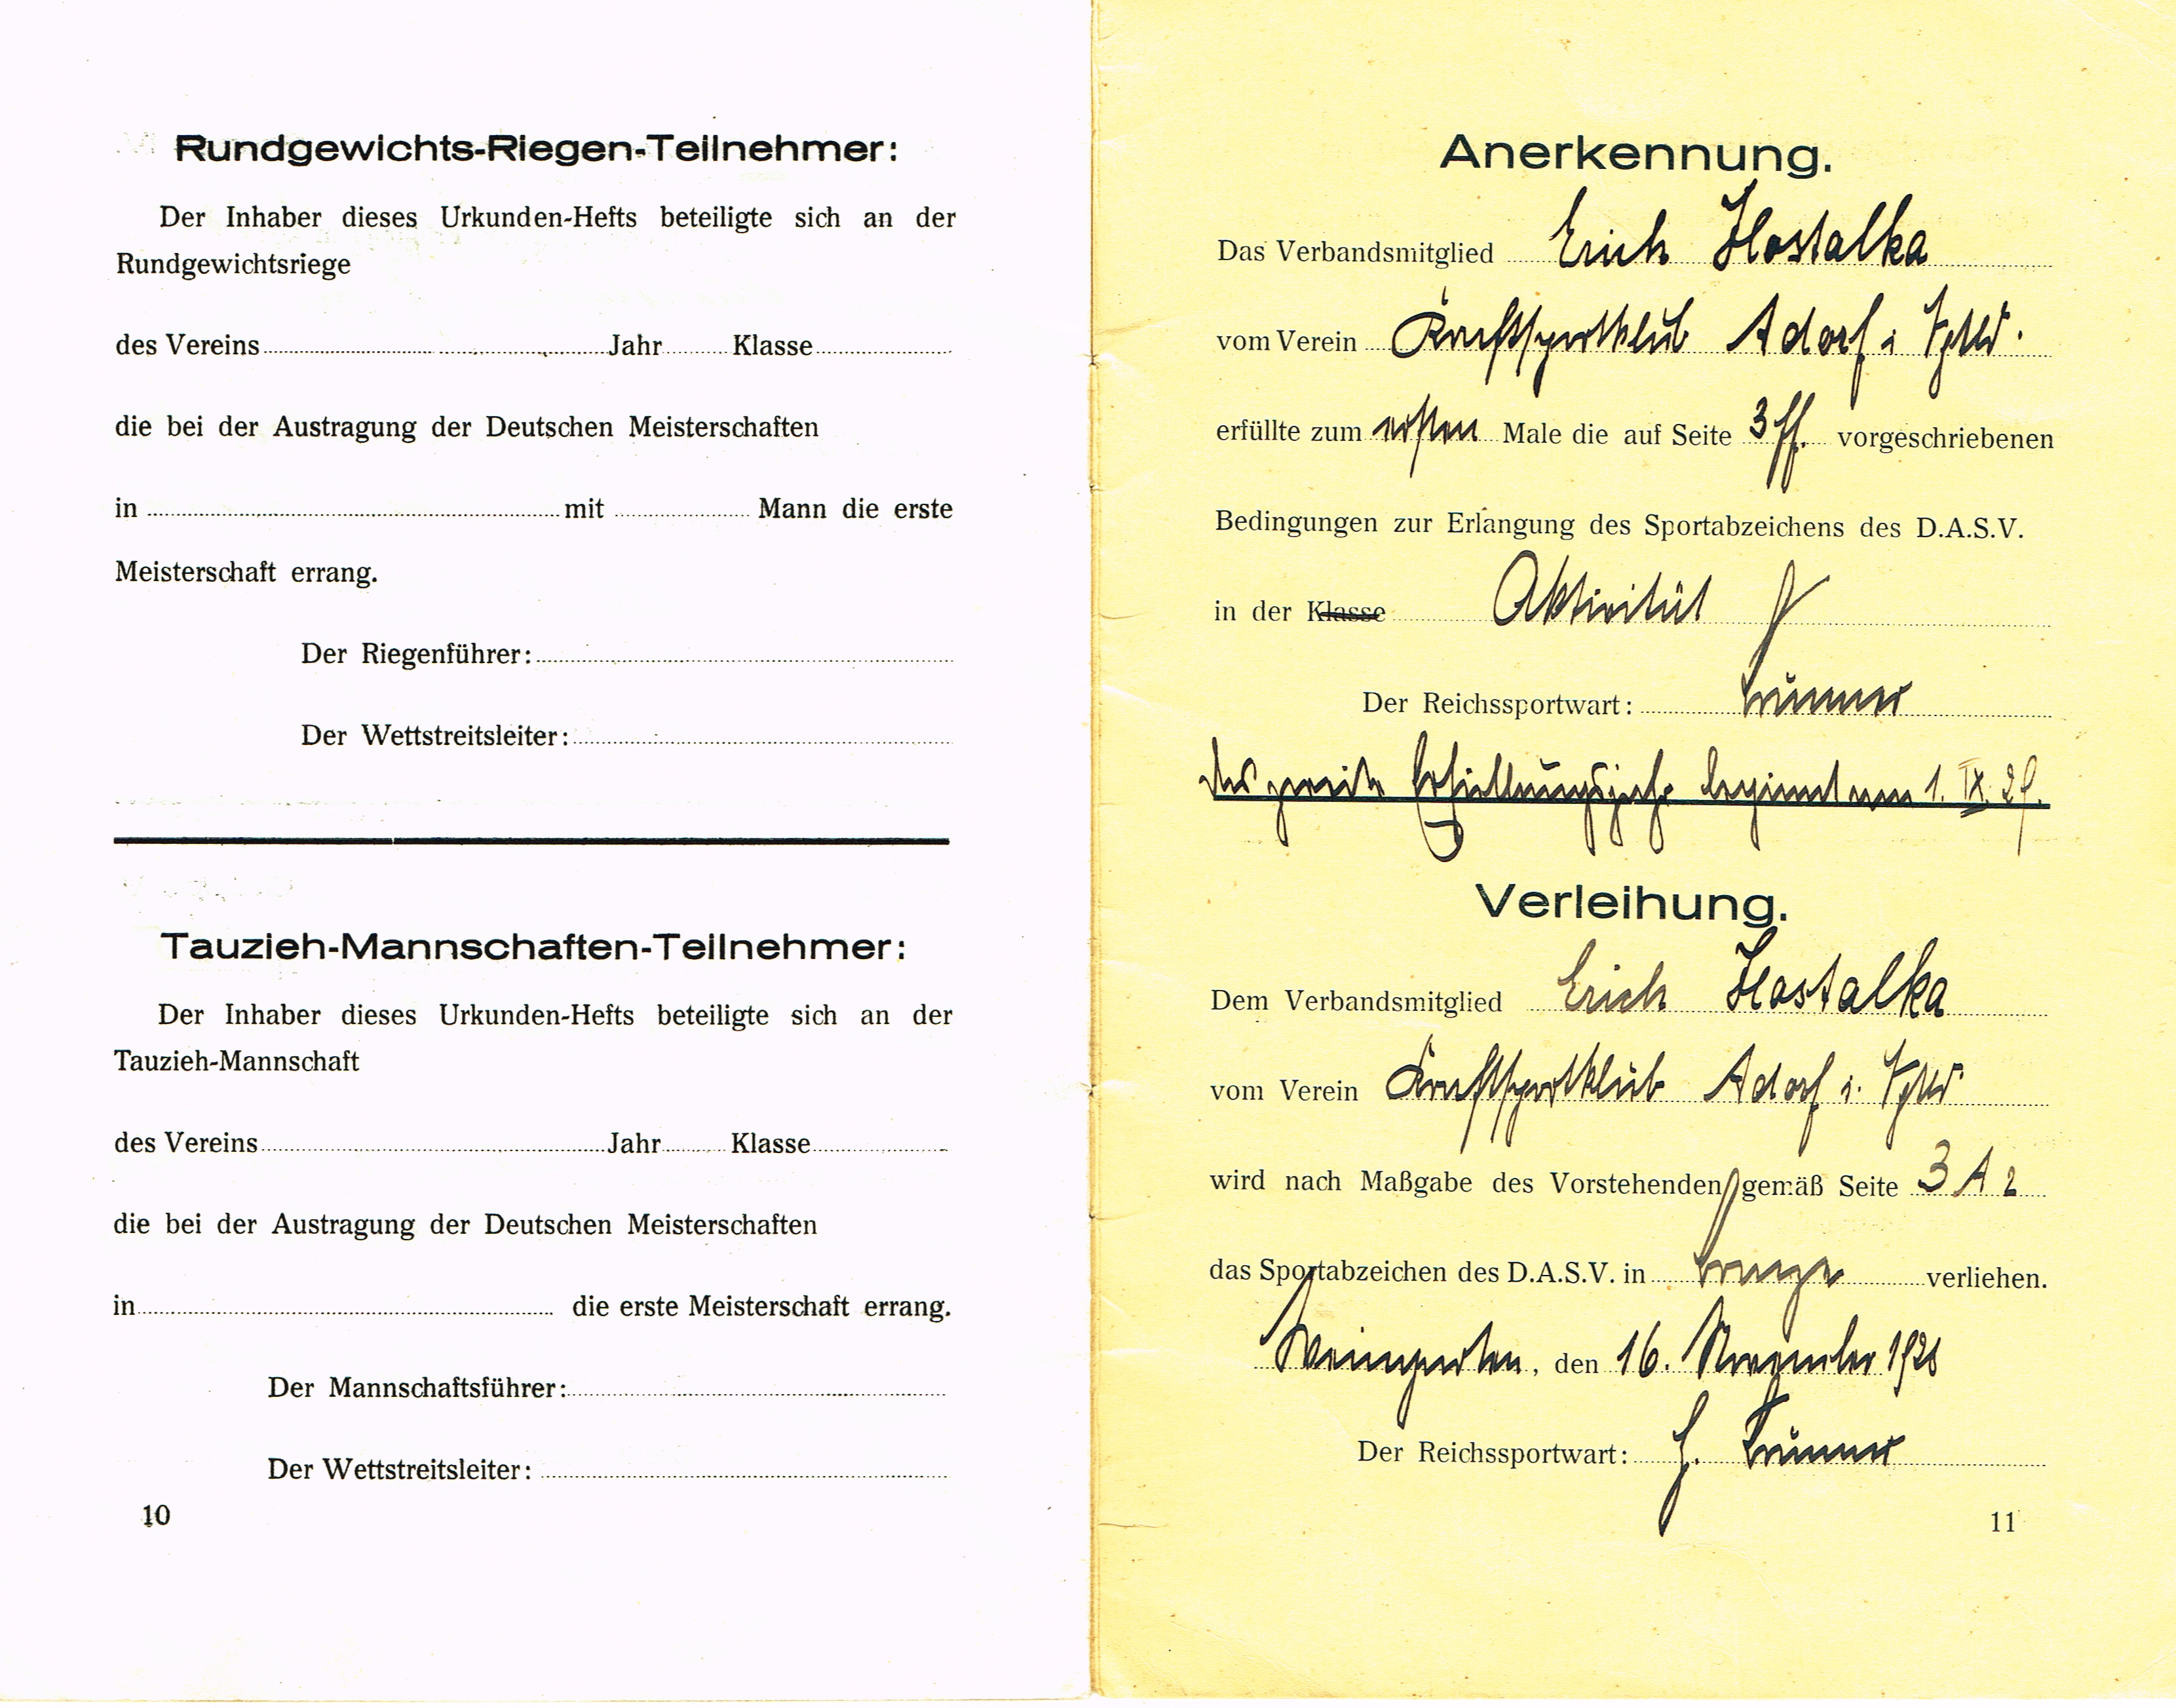 Rundgewichts-Riegen-Teilnehmer:
Der Inhaber dieses Urkunden-Hefts beteiligte sich an der
Rundgewichtsriege
des Vereins Jahr Klasse
die bei der Austragung der Deutschen Meisterschaften
in mit Mann die erste
Meisterschaft errang.
Der Riegenführer:
Der Wettstreitsleiter:
Tauzieh-Mannschaften-Teilnehmer:
Der Inhaber dieses Urkunden-Hefts beteiligte sich an der
Tauzieh-Mannschaft
des Vereins Jahr Klasse
die bei der Austragung der Deutschen Meisterschaften
in die erste Meisterschaft errang.
Der Mannschaftsführer:
Der Wettstreitsleiter:
10
Anerkennung.
Das Verbandsmitglied Erich Hostalka
vom Verein Kraftsportklub Adorf i. Vgtld.
erfüllte zum ersten Male die auf Seite 3 ff. vorgeschriebenen
Bedingungen zur Erlangung des Sportabzeichens des D.A.S.V.
in der Klasse Aktivität
Der Reichssportwart:
das zweite Erfüllungsjahr beginnt am 1. IX. 29.
Verleihung.
Dem Verbandsmitglied Erich Hostalka
vom Verein Kraftsportklub Adorf i. Vgtld.
wird nach Maßgabe des Vorstehenden gemäß Seite 3 A 2
das Sportabzeichen des D.A.S.V. in bronze verliehen.
Weingarten, den 16. November 1928
Der Reichssportwart:
11